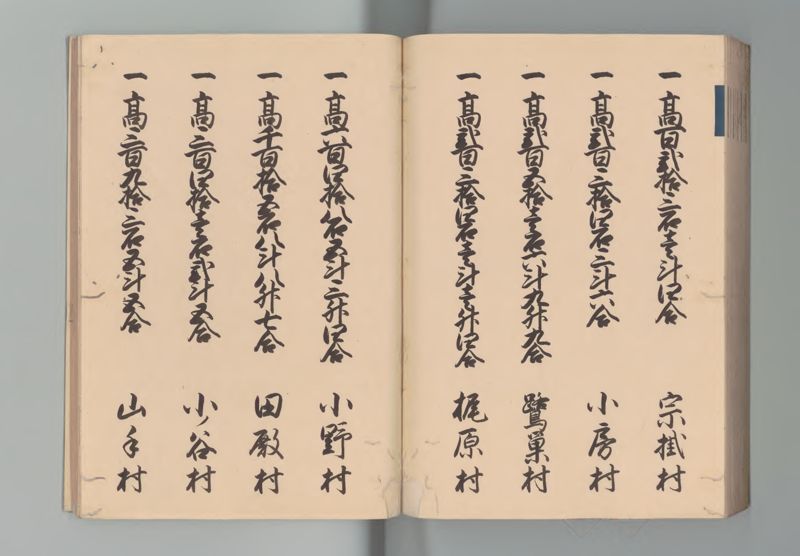 一 高百弐拾三石壱斗四合 宗掛村
一 高弐百三拾四石三斗六合 小房村
一 高弐百五拾壱石六斗九升九合 鷺巣村
一 高弐百三拾四石壱斗壱升四合 梶原村
一 高六百四拾八石五斗三升四合 小野村
一 高千百拾五石八斗八升七合 田殿村
一 高三百四拾壱石弐斗五合 小谷村
一 高三百九拾三石五斗五合 山手村